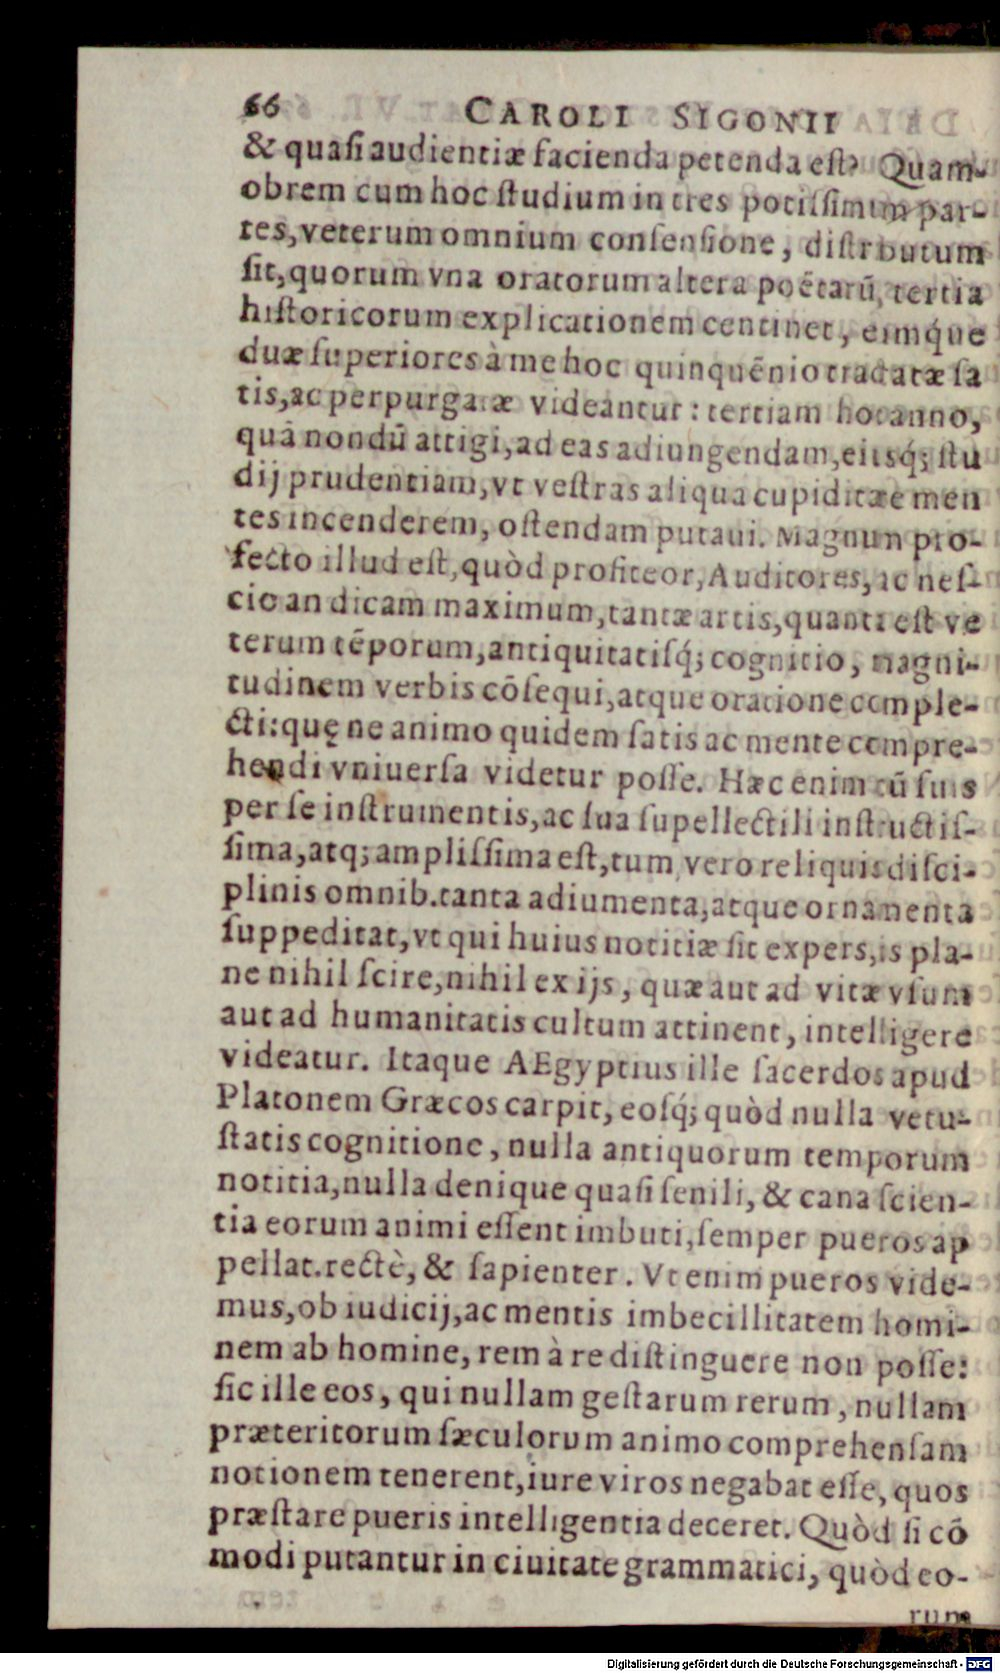 66 CAROLI SIGONII
& quasi audientiæ facienda petenda est? Quam-
obrem cum hoc studium in tres potissimum par-
tes, veterum omnium consensione, distrbutum
sit, quorum vna oratorum altera poëtarū, tertia
historicorum explicationem centinet, eimq́ue
duæ superiores à me hoc quinquēnio tractatæ sa
tis, ac perpurgatæ videantur: tertiam hoc anno,
quā nondū attigi, ad eas adiungendam, eiusq́; stu
dij prudentiam, vt vestras aliqua cupiditate men
tes incenderem, ostendam putaui. Magnun pro-
fecto illud est, quòd profiteor, Auditores, ac nes-
cio an dicam maximum, tantæ artis, quanta est ve
terum tēporum, antiquitatisq́; cognitio, magni-
tudinem verbis cōsequi, atque oratione comple-
cti: quę ne animo quidem satis ac mente compre-
hendi vniuersa videtur posse. Hæc enim cū suis
per se instrumentis, ac sua supellectili instructis-
sima, atq; amplissima est, tum vero reliquis disci-
plinis omnib. tanta adiumenta, atque ornamenta
suppeditat, vt qui huius notitiæ sit expers, is pla-
ne nihil scire, nihil ex ijs, quæ aut ad vitæ vsum
aut ad humanitatis cultum attinent, intelligere
videatur. Itaque AEgyptius ille sacerdos apud
Platonem Græcos carpit, eosq́; quòd nulla vetu-
statis cognitione, nulla antiquorum temporum
notitia, nulla denique quasi senili, & cana scien-
tia eorum animi essent imbuti, semper pueros ap
pellat. rectè, & sapienter. Vt enim pueros vide-
mus, ob iudicij, ac mentis imbecillitatem homi-
nem ab homine, rem à re distinguere non posse:
sic ille eos, qui nullam gestarum rerum, nullam
præteritorum sæculorum animo comprehensam
notionem tenerent, iure viros negabat esse, quos
præstare pueris intelligentia deceret. Quòd si cō
modi putantur in ciuitate grammatici, quòd eo-
rum
Digitalisierung gefördert durch die Deutsche Forschungsgemeinschaft - DFG